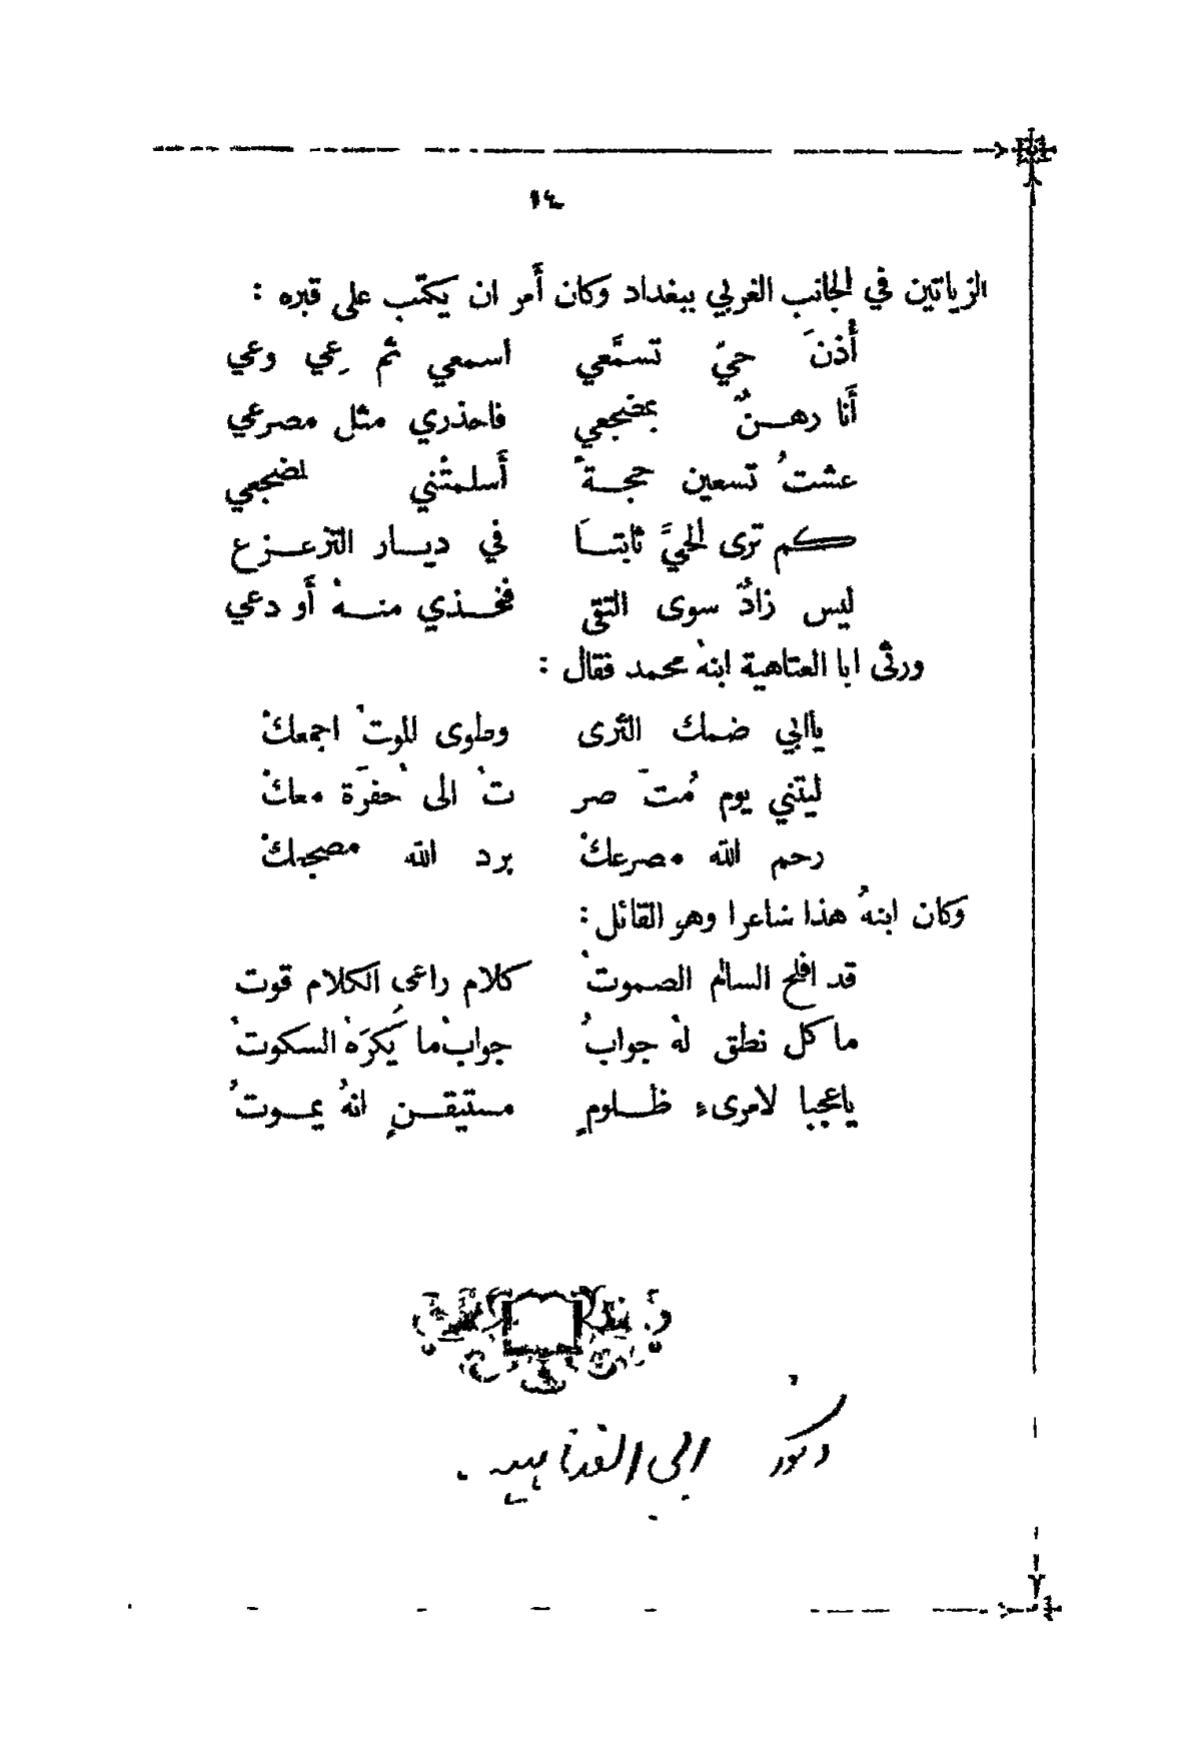 ١٤
الزياتين في الجانب الغربي ببغداد وكان أَمر ان يكتب على قبره :
أُذنَ حيٍّ تسمَّعي اسمعي ثم عِي وعي
أَنا رهــنٌ بمضجعي فاحذري مثل مصرعي
عشتُ تسعين حجــةً أَسلمتْني لمضجعي
كم ترى الحيَّ ثابتــاً في ديــار التزعــزع
ليس زادٌ سوى التقى فخــذي منــهُ أَو دعي
ورثى ابا العتاهية ابنهُ محمد فقال :
ياأبي ضمك الثرى وطوى الموتُ اجمعكْ
ليتني يوم مُتَّ صر تُ الى حُفرَة معكْ
رحم الله مصرعكْ برد الله مضجعكْ
وكان ابنهُ هذا شاعرا وهو القائل :
قد افلح السالم الصموتُ كلام راعي الكلام قوت
ما كل نطق لهُ جوابُ جوابُ ما يُكرَهُ السكوتُ
ياعجبا لامرىءٍ ظلــومٍ مستيقــنٍ انهُ يمــوتُ